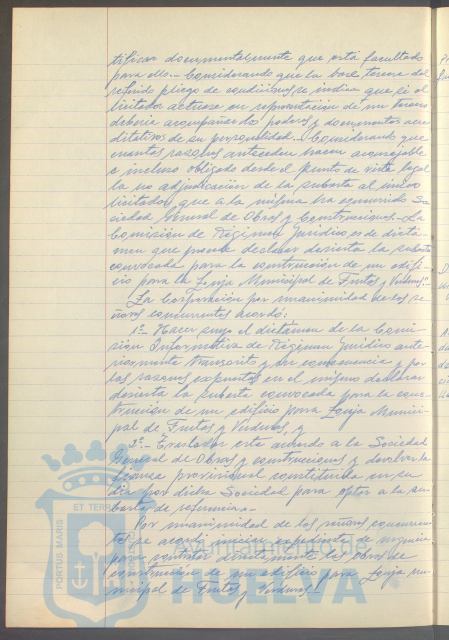 tificar documentalmente que está facultado
para ello.- Considerando que la base tercera del
referido pliego de condiciones, se indica que si el
licitador actuase en representación de un tercero
deberá acompañar los poderes y documentos acre
ditativos de su personalidad.- Considerando que
cuantas razones anteceden hacen aconsejable
e incluso obligado desde el punto de vista legal
la no adjudicación de la subasta al único
licitador que a la misma ha concurrido So
ciedad General de Obras y Construcciones.- La
Comisión de Régimen Jurídico es de dicta
men que procede declarar desierta la subasta
convocada para la construcción de un edifi
cio para la Lonja Municipal de Frutas y Verduras."
La Corporación por unanimidad de los se
ñores concurrentes acordó:
1º.- Hacer suyo el dictámen de la Comi
sión Informativa de Régimen Jurídico ante
riormente transcrito y en consecuencia y por
las razones expuestas en el mismo declarar
desierta la subasta convocada para la cons
trucción de un edificio para Lonja Munici
pal de Frutas y Verduras, y
2º.- Trasladar este acuerdo a la Sociedad
General de Obras y construcciones y devolver la
fianza provisional constituida en su
día por dicha Sociedad para optar a la su
basta de referencia.-
Por unanimidad de los señores concurren
tes se acordó iniciar expediente de urgencia
para contratar directamente las obras de
construcción de un edificio para Lonja mu
nicipal de Frutas y Verduras.
PORTUS MARIS
ET TERRAE
Ayuntamiento
HUELVA